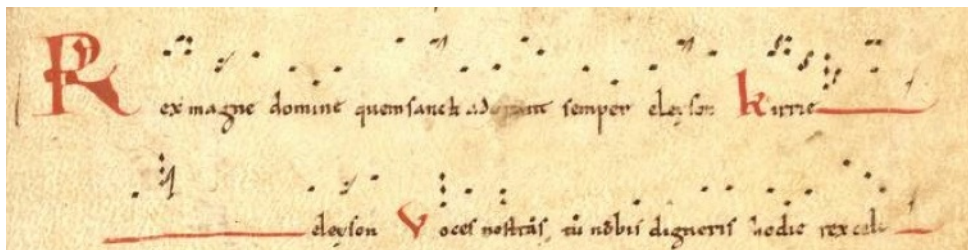 Rex magne domine quem sancti adorant semper eleyson kirrie
eleyson Voces nostras tu nobis digneris hodie rex celi